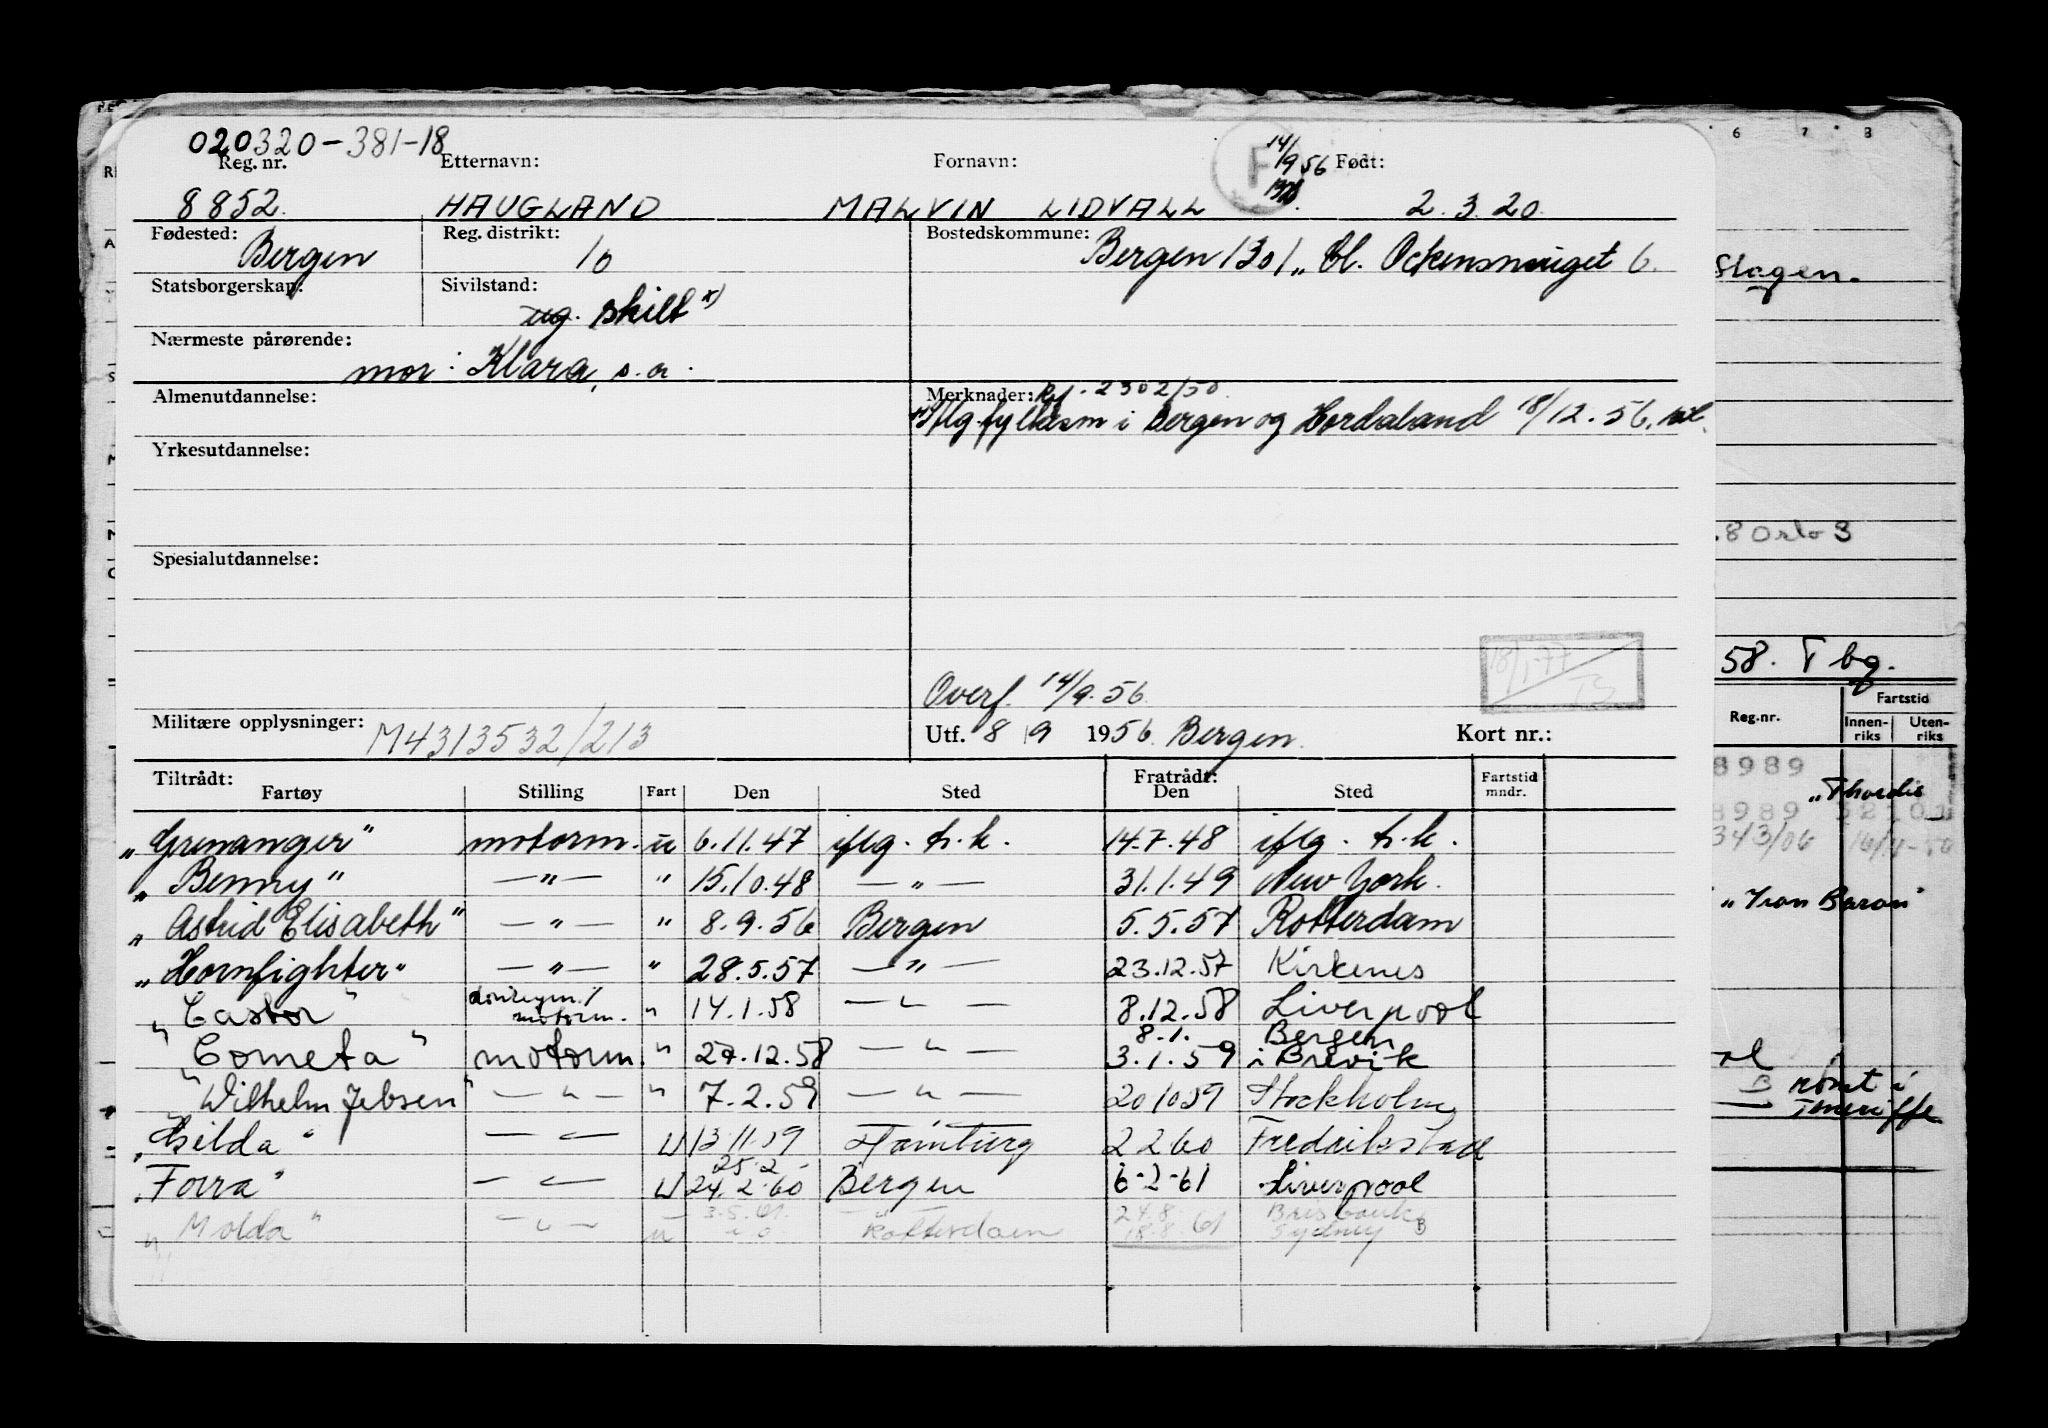 020320-381-18
Reg. nr. Etternavn: Fornavn: F 14/9 56 Født:
8852. HAUGLAND MALVIN LIDVALL 2.3.20.
Fødested: Bergen Reg. distrikt: 10 Bostedskommune: Bergen 1301,, 6.
Slagen.
Statsborgerskap: Sivilstand: ug. skilt x)
Nærmeste pårørende: mor: Klara, s.a.
Almenutdannelse: Merknader: 2302/50
i Bergen og Hordaland 18/12.56.
Yrkesutdannelse:
8 Oslo 3
Spesialutdannelse:
58. Tbg.
18/1-77
Overf. 14/9.56.
Militære opplysninger: M4313532/213 Utf. 8/9 1956. Bergen. Kort nr.:
Reg.nr. Fartstid
Innen-riks Uten-riks
Tiltrådt: Fratrådt:
Fartøy Stilling Fart Den Sted Den Sted Fartstid mndr.
8989 "Thordis
"Grenanger" motorm. u 6.11.47 iflg. h.k. 14.7.48 iflg. h.k.
"Benny" —"— " 15.10.48 —"— 31.1.49 New York.
"Astrid Elisabeth" —"— " 8.9.56 Bergen 5.5.57 Rotterdam
"Iron Baron"
"Hornfighter" —"— " 28.5.57 —"— 23.12.57 Kirkenes
"Castor" motorm. " 14.1.58 —"— 8.12.58 Liverpool
8.1. Bergen
"Cometa" motorm. " 27.12.58 —"— 3.1.59 i Brevik
"Wilhelm Jebsen" —"— " 7.2.59 —"— 20 10 59 Stockholm
rømt i Teneriffe
"Hilda" —"— U 13 11 59 Hamburg 2 2 60 Fredrikstad
25.2
"Forra" —"— U 24.2.60 Bergen 6-2-61 Liverpool
"Molda" —"— u 3.5.61. Rotterdam 24.8 18.8.61 Brisbane Sydney B